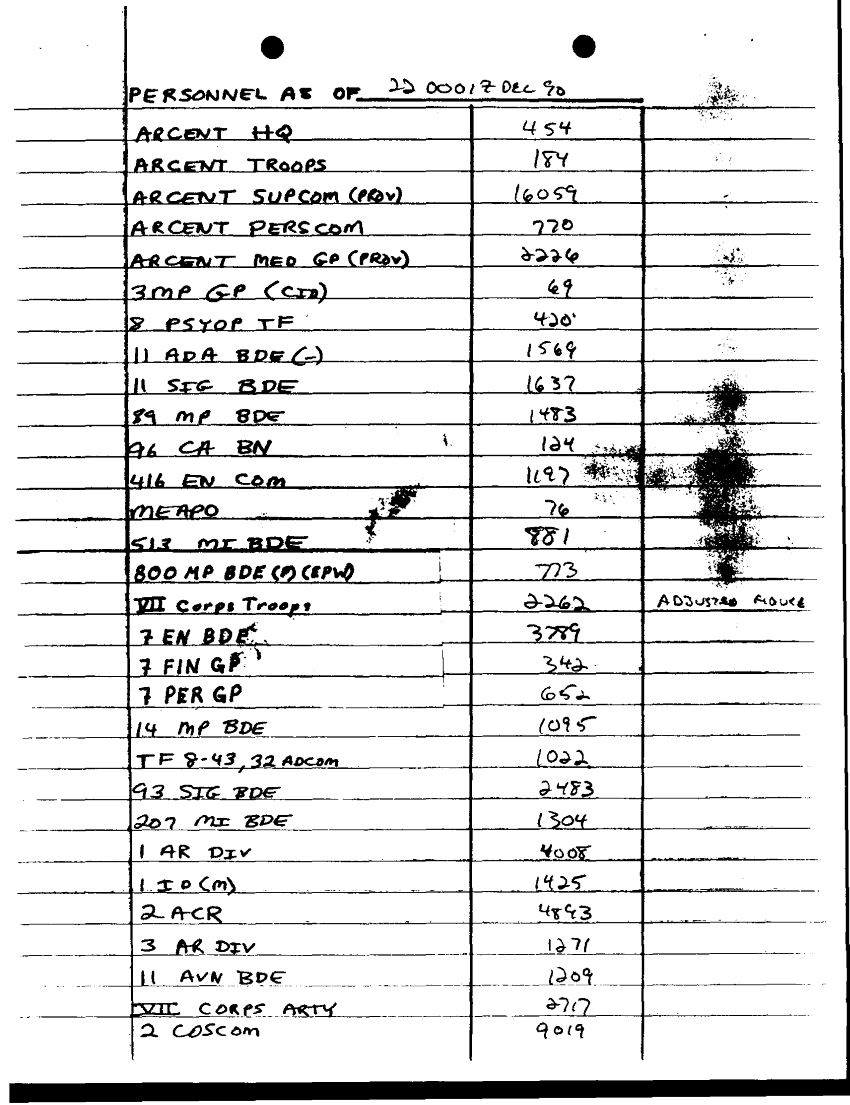 PERSONNEL AS OF 22 0001Z DEC 90
ARCENT HQ 454
ARCENT TROOPS 184
ARCENT SUPCOM (PROV) 16059
ARCENT PERSCOM 770
ARCENT MED GP (PROV) 2226
3 MP GP (CID) 69
8 PSYOP TF 420
11 ADA BDE (-) 1569
11 SIG BDE 1637
89 MP BDE 1483
96 CA BN 124
416 EN COM 1197
MEAPO 76
513 MI BDE 881
800 MP BDE (P) (EPW) 773
VII Corps Troops 2262 ADJUSTED FIGURE
7 EN BDE 3789
7 FIN GP 342
7 PER GP 652
14 MP BDE 1095
TF 8-43, 32 ADCOM 1022
93 SIG BDE 2483
207 MI BDE 1304
1 AR DIV 4008
1 ID (M) 1425
2 ACR 4893
3 AR DIV 1271
11 AVN BDE 1209
VII CORPS ARTY 2717
2 COSCOM 9019